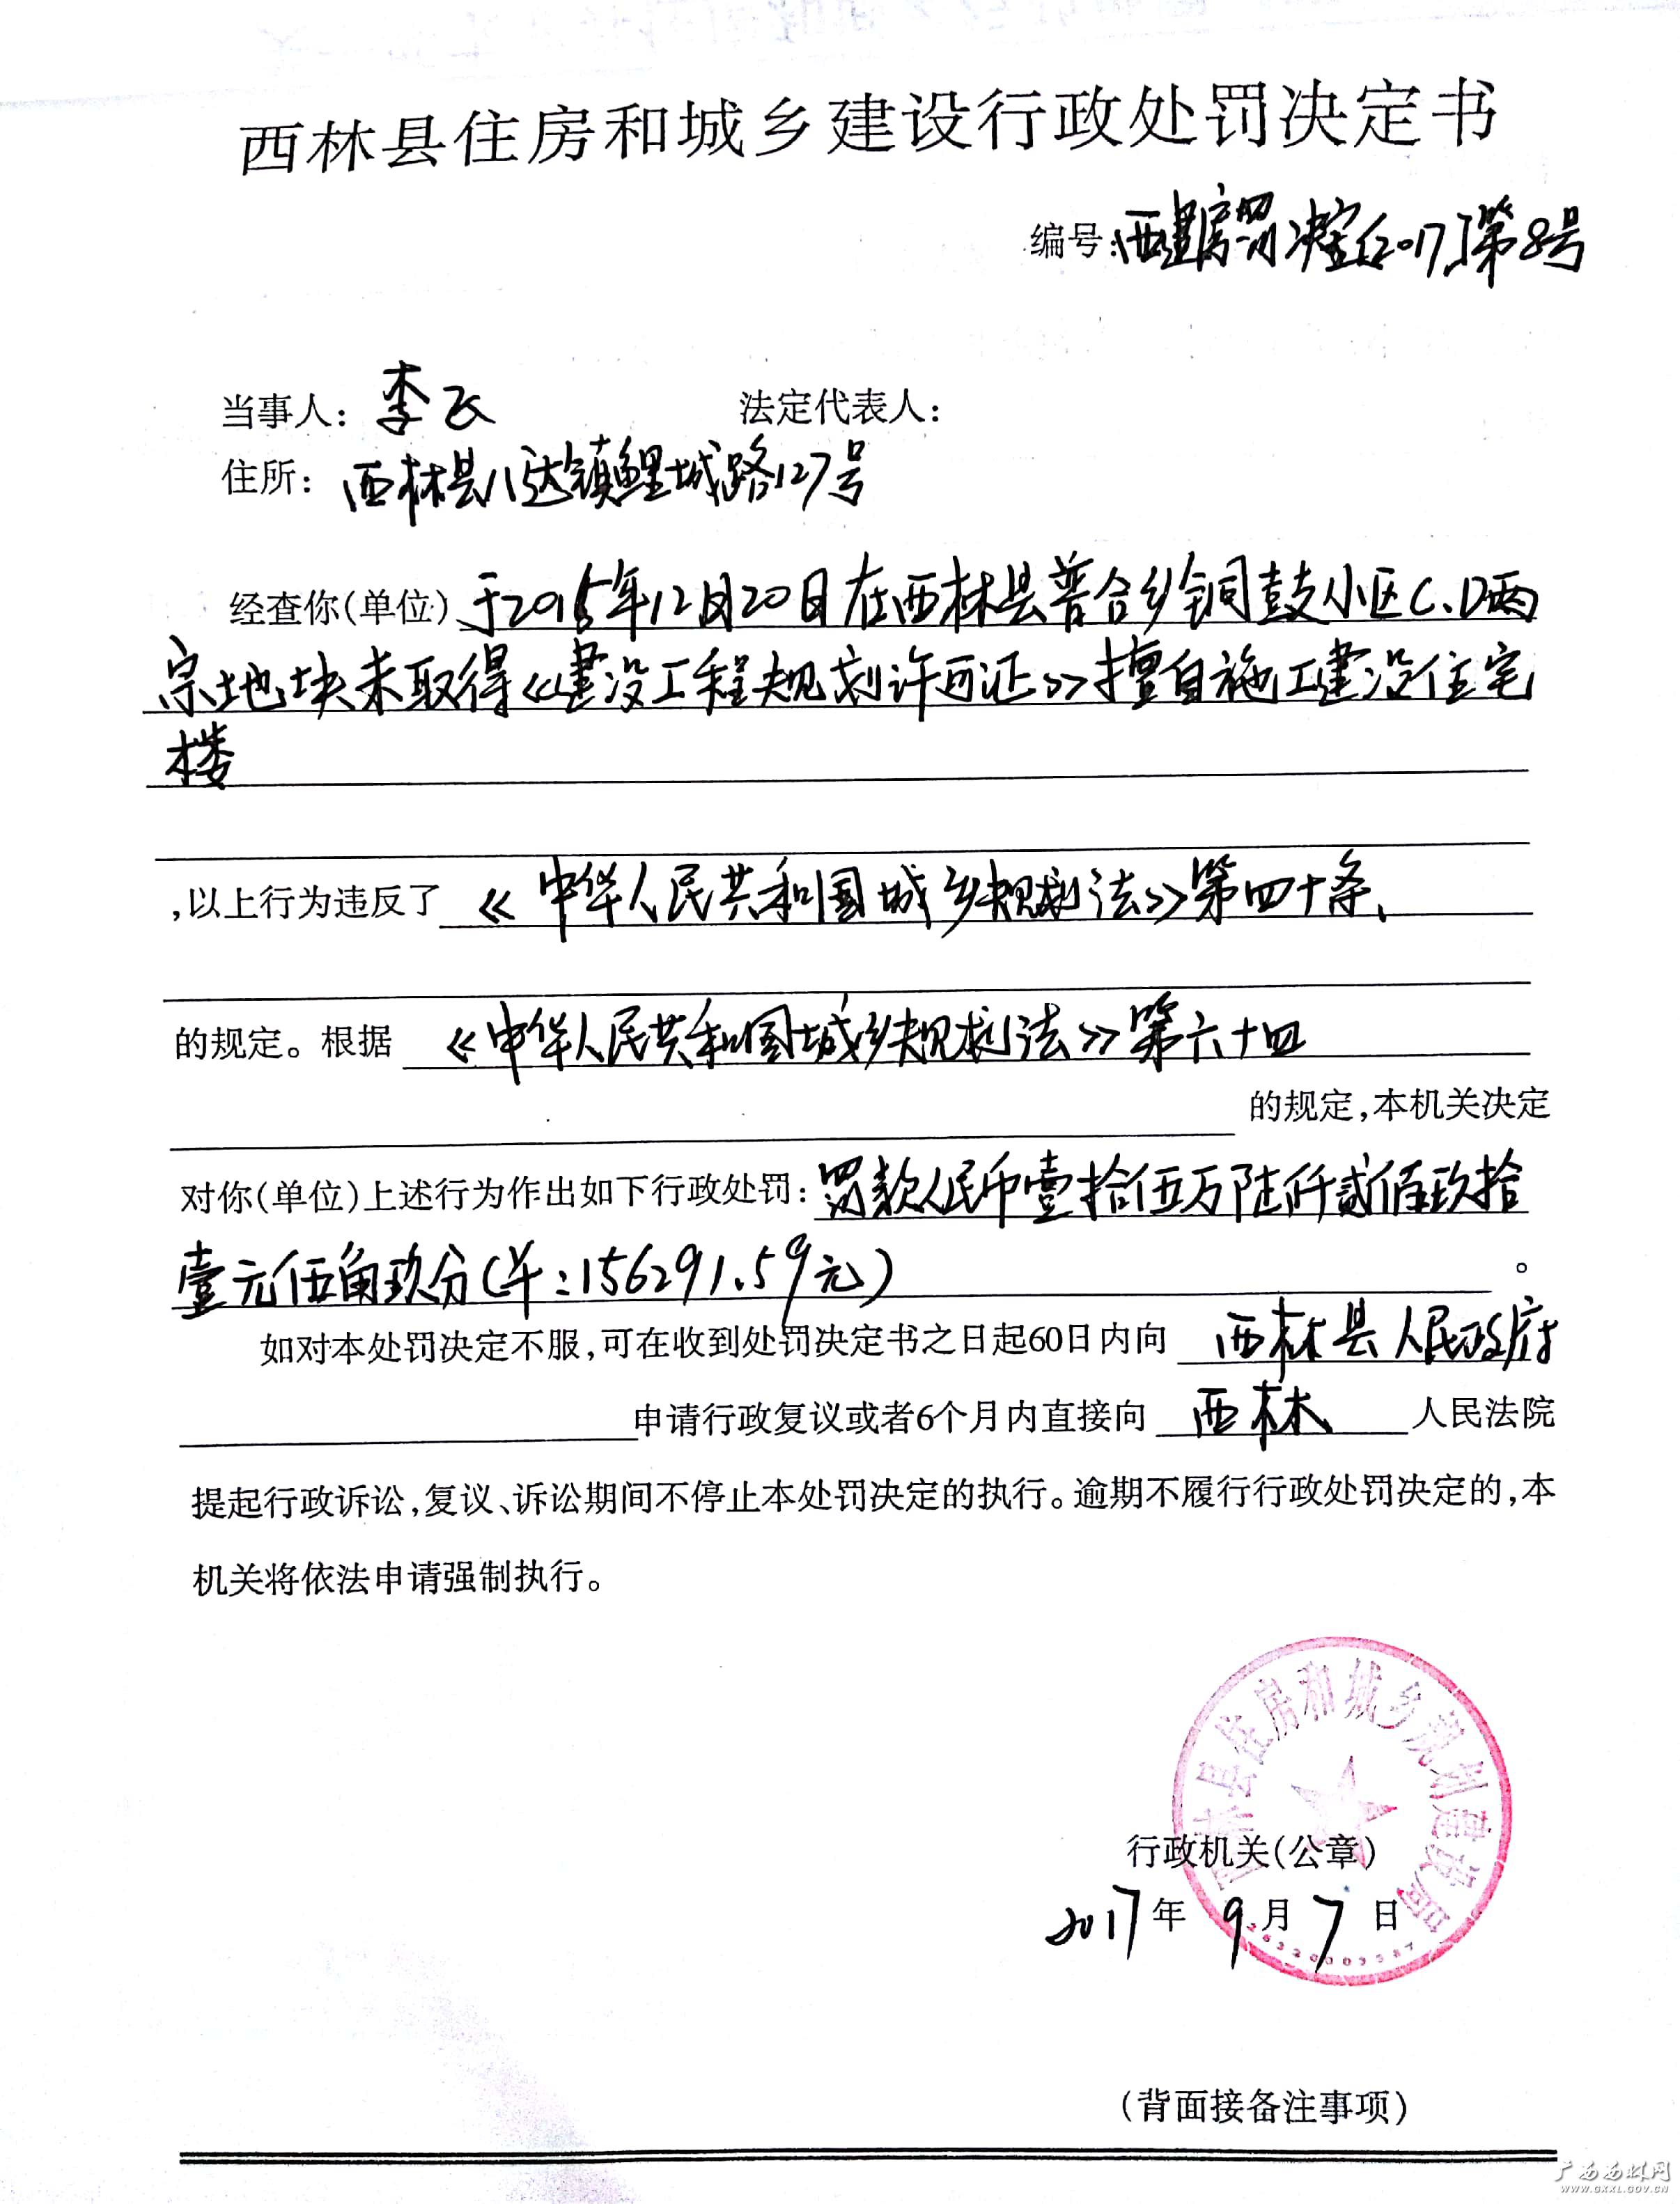 西林县住房和城乡建设行政处罚决定书
编号:西建房罚决定[2017]第8号
当事人: 李飞 法定代表人:
住所: 西林县八达镇鲤城路127号
经查你(单位) 于2015年12月20日在西林县普合乡铜鼓小区C、D两
宗地块未取得《建设工程规划许可证》擅自施工建设住宅
楼
,以上行为违反了 《中华人民共和国城乡规划法》第四十条、
的规定。根据 《中华人民共和国城乡规划法》第六十四
的规定,本机关决定
对你(单位)上述行为作出如下行政处罚: 罚款人民币壹拾伍万陆仟贰佰玖拾
壹元伍角玖分(¥:156291.59元) 。
如对本处罚决定不服,可在收到处罚决定书之日起60日内向 西林县人民政府
申请行政复议或者6个月内直接向 西林 人民法院
提起行政诉讼,复议、诉讼期间不停止本处罚决定的执行。逾期不履行行政处罚决定的,本
机关将依法申请强制执行。
西林县住房和城乡规划建设局
行政机关(公章)
2017年 9月 7日
(背面接备注事项)
广西西林网
WWW.GXXL.GOV.CN